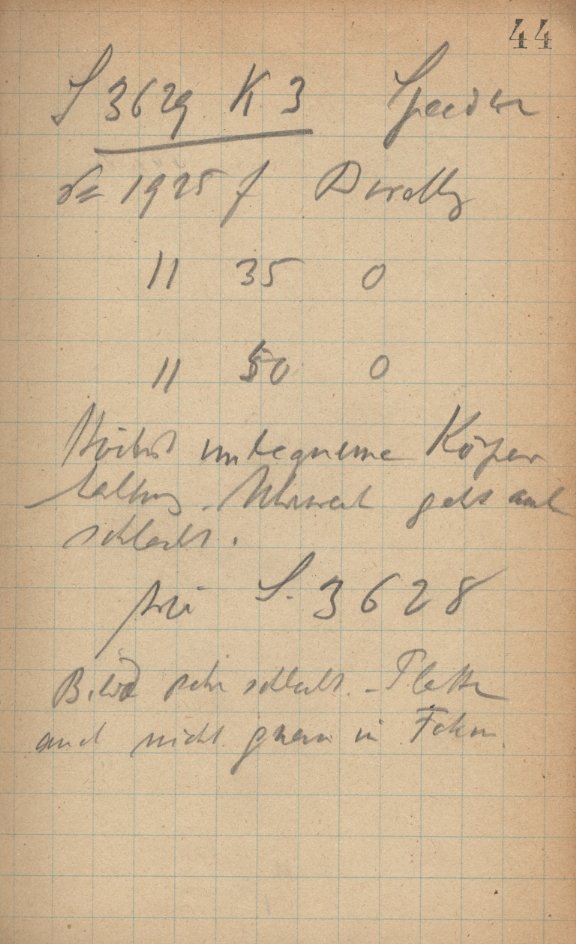 44
S 3629 K 3
1925 f
11 35 0
11 50 0
Höchst unbequeme Körper
haltung. Uhrwerk geht auch
schlecht.
wie S. 3628
Bild sehr schlecht. – Platte
auch nicht genau in Fokus.